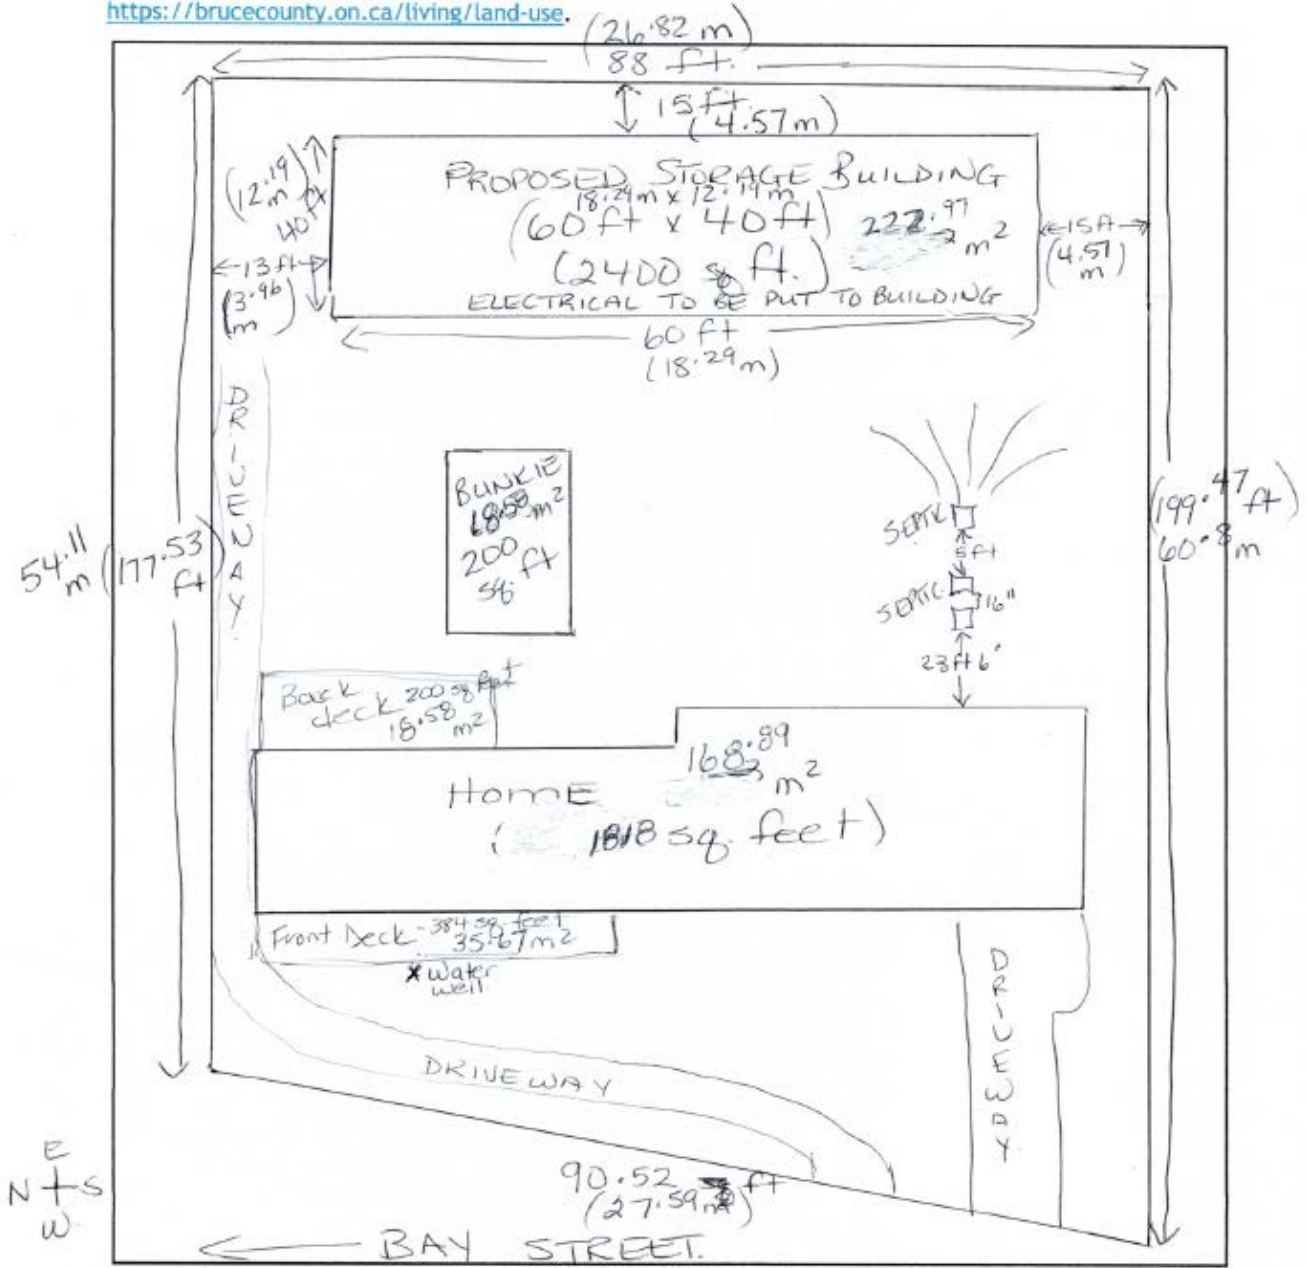 https://brucecounty.on.ca/living/land-use.
(26.82 m)
88 ft.
15 ft.
(4.57m)
(12.19
m)
40 ft
PROPOSED STORAGE BUILDING
18.29m x 12.19m
(60 ft x 40 ft)
222.97
m²
(2400 sq ft.)
ELECTRICAL TO BE PUT TO BUILDING
13 ft
(3.96
m)
15 ft
(4.57
m)
60 ft
(18.29m)
DRIVEWAY
BUNKIE
18.58 m²
200
sq. ft
SEPTIC
5 ft
SEPTIC
16"
23 ft 6"
54.11
m
(177.53
ft)
(199.47 ft)
60.8 m
Back
deck 200 sq feet
18.58
m²
168.89
m²
HOME
( 1818 sq. feet)
Front Deck - 384 sq. feet
35.67m²
x Water
well
DRIVEWAY
DRIVEWAY
E
N S
W
90.52 ft
(27.59m)
BAY STREET.